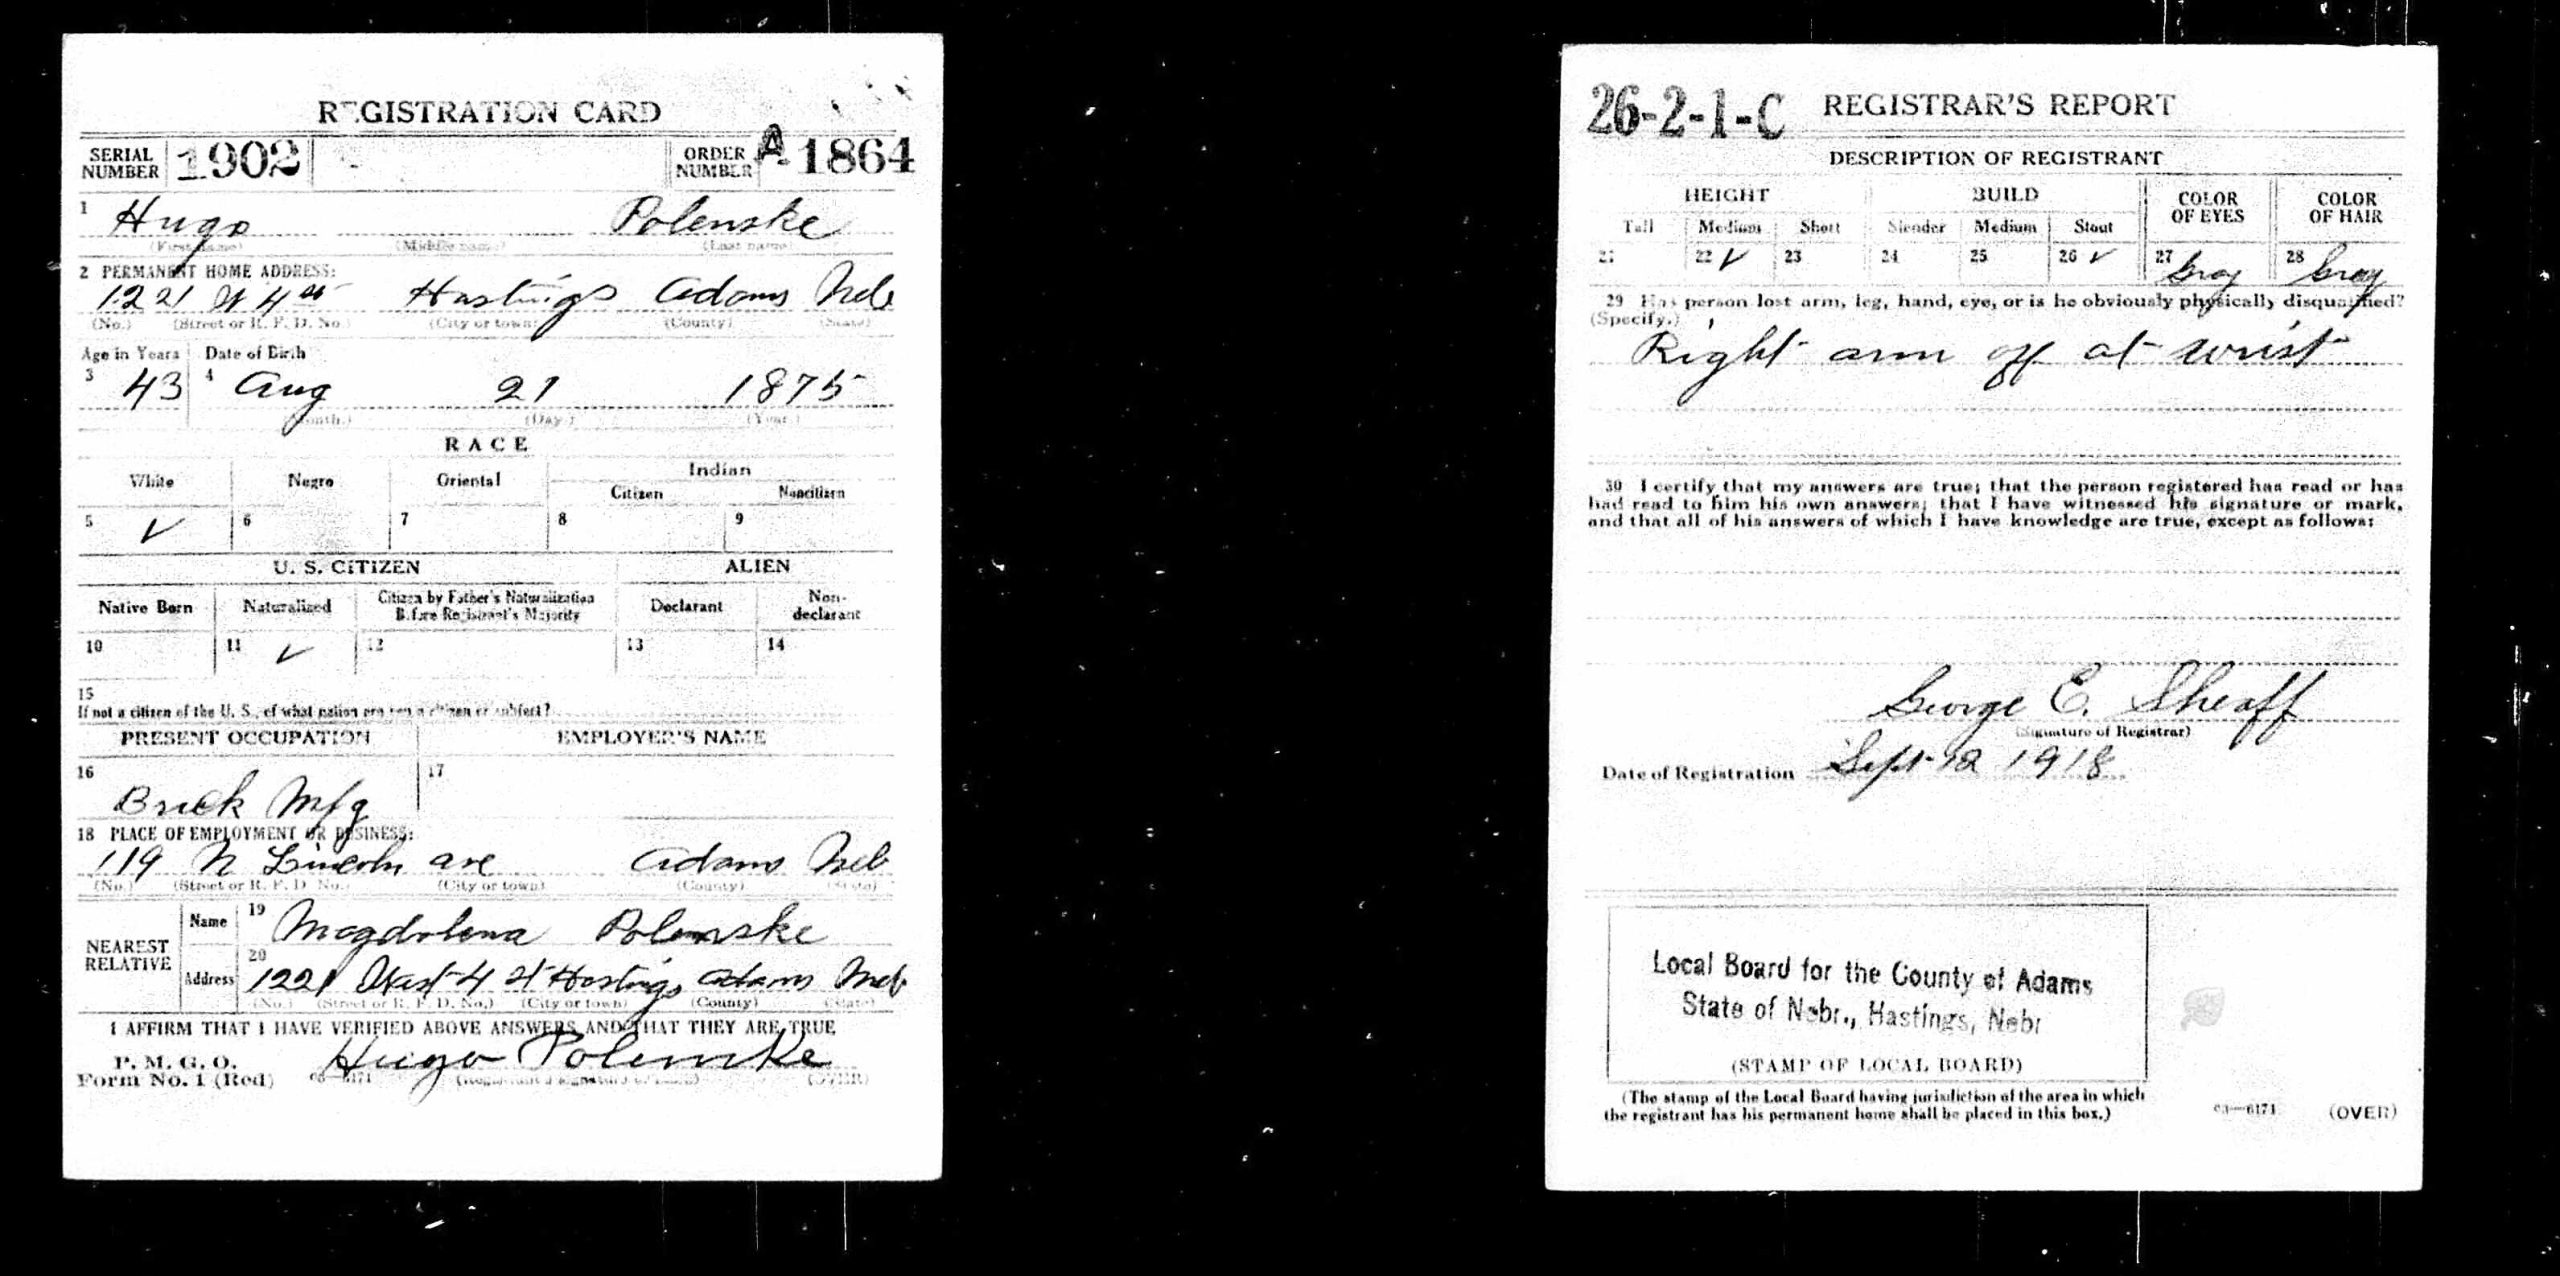 REGISTRATION CARD
SERIAL NUMBER 1902 ORDER NUMBER A-1864
1 Hugo Polenske
(First name) (Middle name) (Last name)
2 PERMANENT HOME ADDRESS:
1221 W 4 st Hastings Adams Neb
(No.) (Street or R. F. D. No.) (City or town) (County) (State)
Age in Years Date of Birth
3 43 4 Aug 21 1875
(Month.) (Day.) (Year.)
RACE
White Negro Oriental Indian
Citizen Noncitizen
5 ✓ 6 7 8 9
U. S. CITIZEN ALIEN
Native Born Naturalized Citizen by Father's Naturalization Before Registrant's Majority Declarant Non-declarant
10 11 ✓ 12 13 14
15
If not a citizen of the U. S., of what nation are you a citizen or subject?
PRESENT OCCUPATION EMPLOYER'S NAME
16 Brick Mfg 17
18 PLACE OF EMPLOYMENT OR BUSINESS:
119 N Lincoln ave Adams Neb
(No.) (Street or R. F. D. No.) (City or town) (County) (State)
NEAREST RELATIVE
Name 19 Magdolena Polenske
Address 20 1221 West 4 st Hastings Adams Neb
(No.) (Street or R. F. D. No.) (City or town) (County) (State)
I AFFIRM THAT I HAVE VERIFIED ABOVE ANSWERS AND THAT THEY ARE TRUE
P. M. G. O.
Form No. 1 (Red) Hugo Polenske
03—6171 (Registrant's signature or mark) (OVER)
26-2-1-C REGISTRAR'S REPORT
DESCRIPTION OF REGISTRANT
HEIGHT BUILD COLOR OF EYES COLOR OF HAIR
Tall Medium Short Slender Medium Stout
21 22 ✓ 23 24 25 26 ✓ 27 Gray 28 Gray
29 Has person lost arm, leg, hand, eye, or is he obviously physically disqualified?
(Specify.)
Right arm off at wrist
30 I certify that my answers are true; that the person registered has read or has
had read to him his own answers; that I have witnessed his signature or mark,
and that all of his answers of which I have knowledge are true, except as follows:
George E. Sheaff
(Signature of Registrar)
Date of Registration Sept 12 1918
Local Board for the County of Adams
State of Nebr., Hastings, Nebr
(STAMP OF LOCAL BOARD)
(The stamp of the Local Board having jurisdiction of the area in which
the registrant has his permanent home shall be placed in this box.)
03—6171 (OVER)